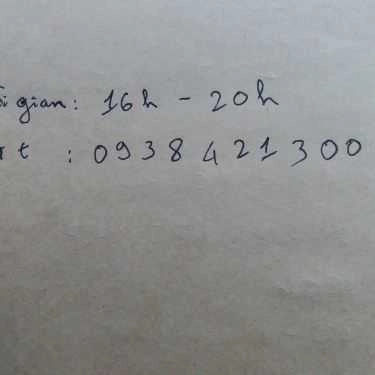 gian: 16h - 20h
t : 0938 421 300